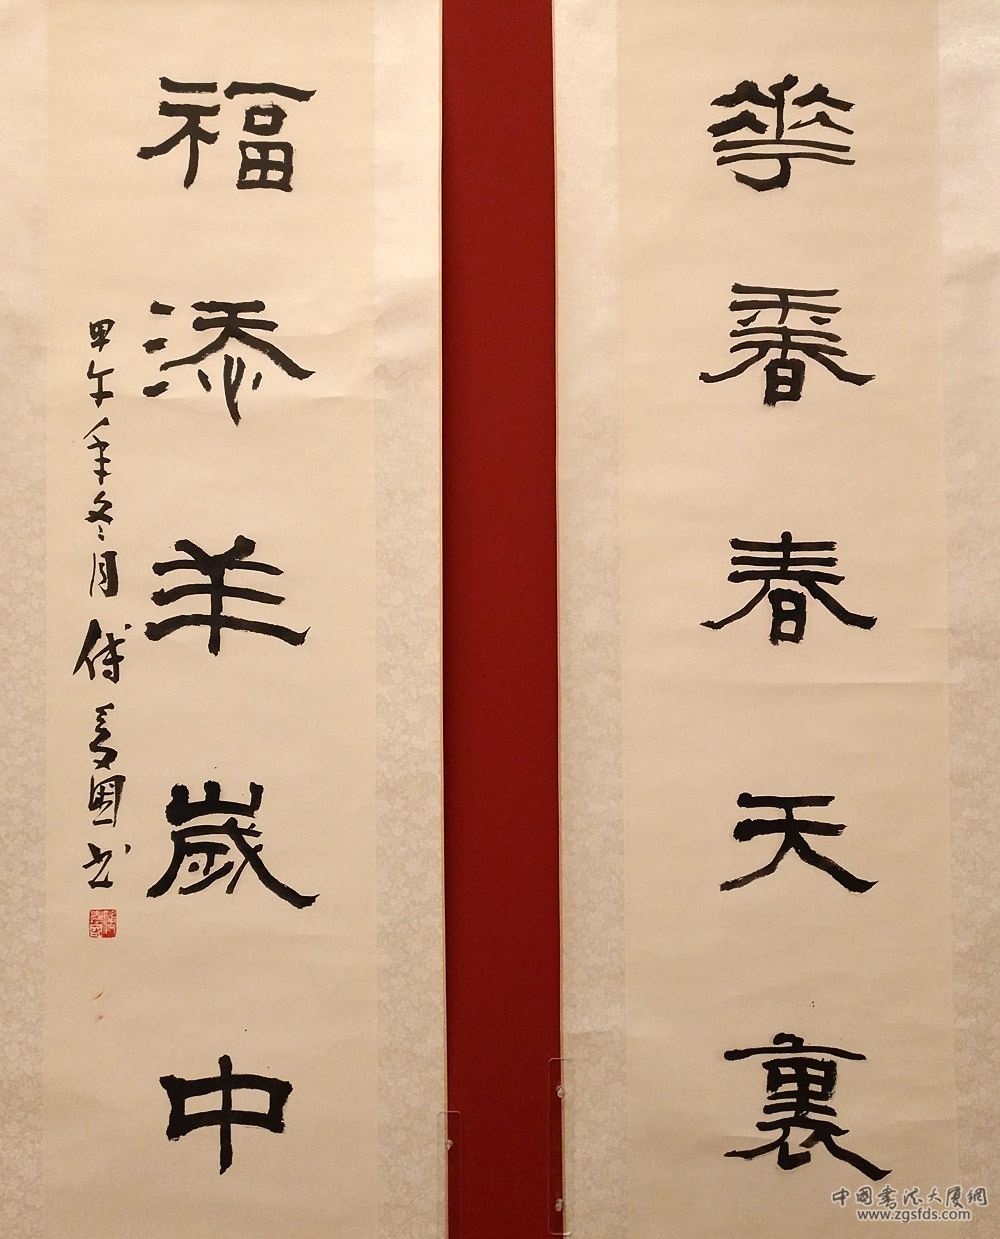 華香春天裏
福添羊歲中
甲午年冬月傅爱國书
中国书法大厦網
www.zgsfds.com